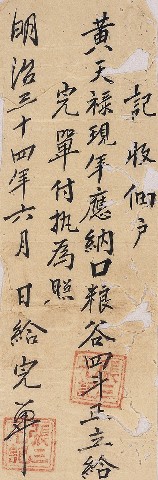 記收佃户
黄天禄現年應納口粮谷四斗正立給
完單付执為照
明治三十四年六月　日給完單